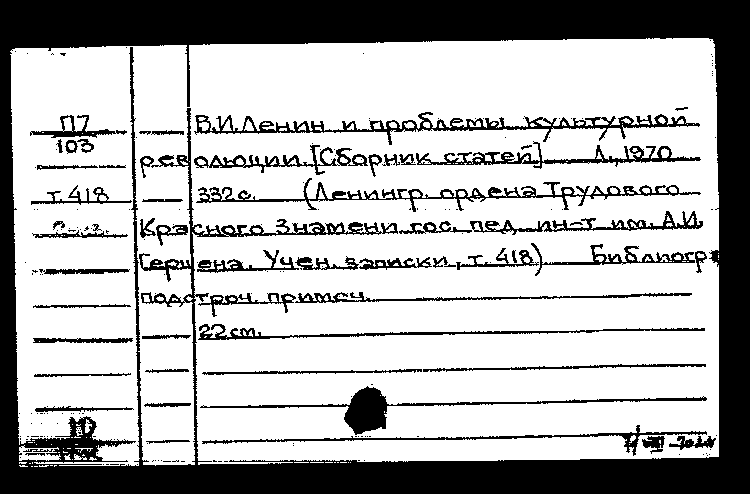 П7
103
т. 418
В.И.Ленин и проблемы культурной
революции. [Сборник статей] Л., 1970
332 с. (Ленингр. ордена Трудового
Красного Знамени гос. пед. ин-т им. А.И.
Герцена. Учен. записки, т. 418) Библиогр
подстроч. примеч.
22 см.